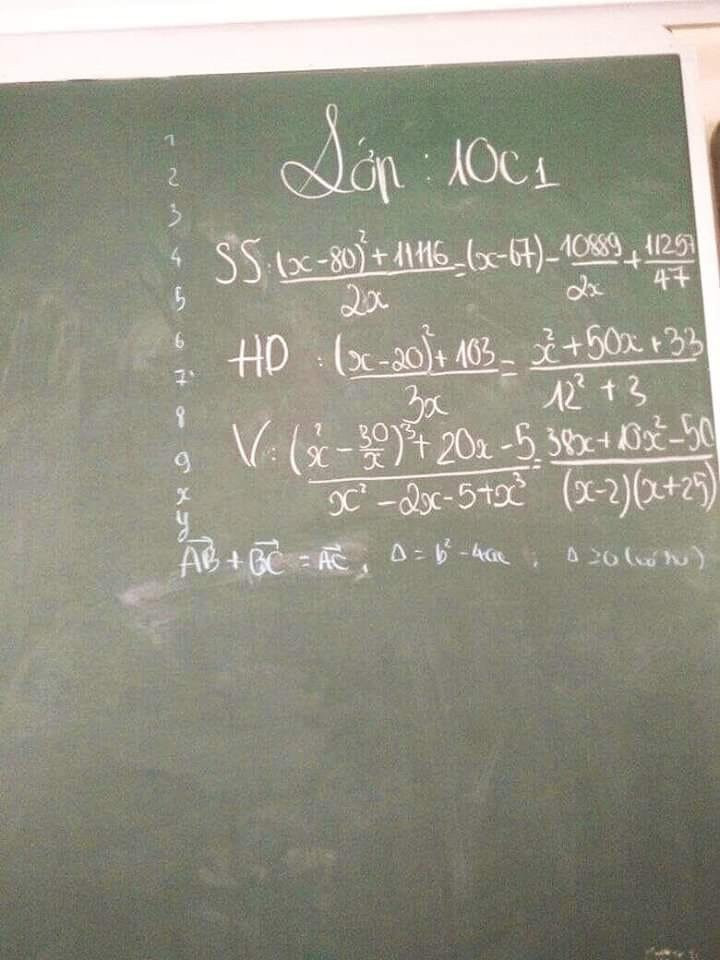 Lớp : 10C1
1
2
3
4
5
6
7
8
9
x
y
SS : ((x-80)² + 11116)/2x = (x-67) - 10889/2x + 11257/47
HD : ((x-20)² + 103)/3x = (x² + 50x + 33)/(12² + 3)
V : ((x² - 30/x)³ + 20x - 5)/(x² - 2x - 5 + x³) = (38x + 10x² - 50)/((x-2)(x+25))
AB + BC = AC , Δ = b² - 4ac ; Δ ≥ 0